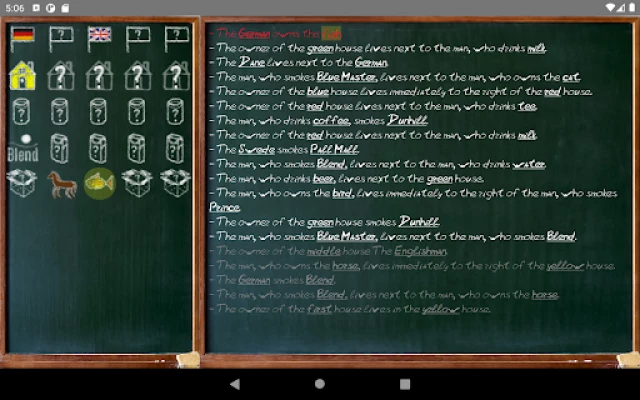 5:06
Blend
- The German owns the
- The owner of the green house lives next to the man, who drinks milk.
- The Dane lives next to the German.
- The man, who smokes Blue Master, lives next to the man, who owns the cat.
- The owner of the blue house lives immediately to the right of the red house.
- The owner of the red house lives next to the man, who drinks tee.
- The man, who drinks coffee, smokes Dunhill.
- The owner of the red house lives next to the man, who drinks milk.
- The Swede smokes Pall Mall.
- The man, who smokes Blend, lives next to the man, who drinks water.
- The man, who drinks beer, lives next to the green house.
- The man, who owns the bird, lives immediately to the right of the man, who smokes
Prince.
- The owner of the green house smokes Dunhill.
- The man, who smokes Blue Master, lives next to the man, who smokes Blend.
- The owner of the middle house The Englishman.
- The man, who owns the horse, lives immediately to the right of the yellow house.
- The German smokes Blend.
- The man, who smokes Blend, lives next to the man, who owns the horse.
- The owner of the first house lives in the yellow house.